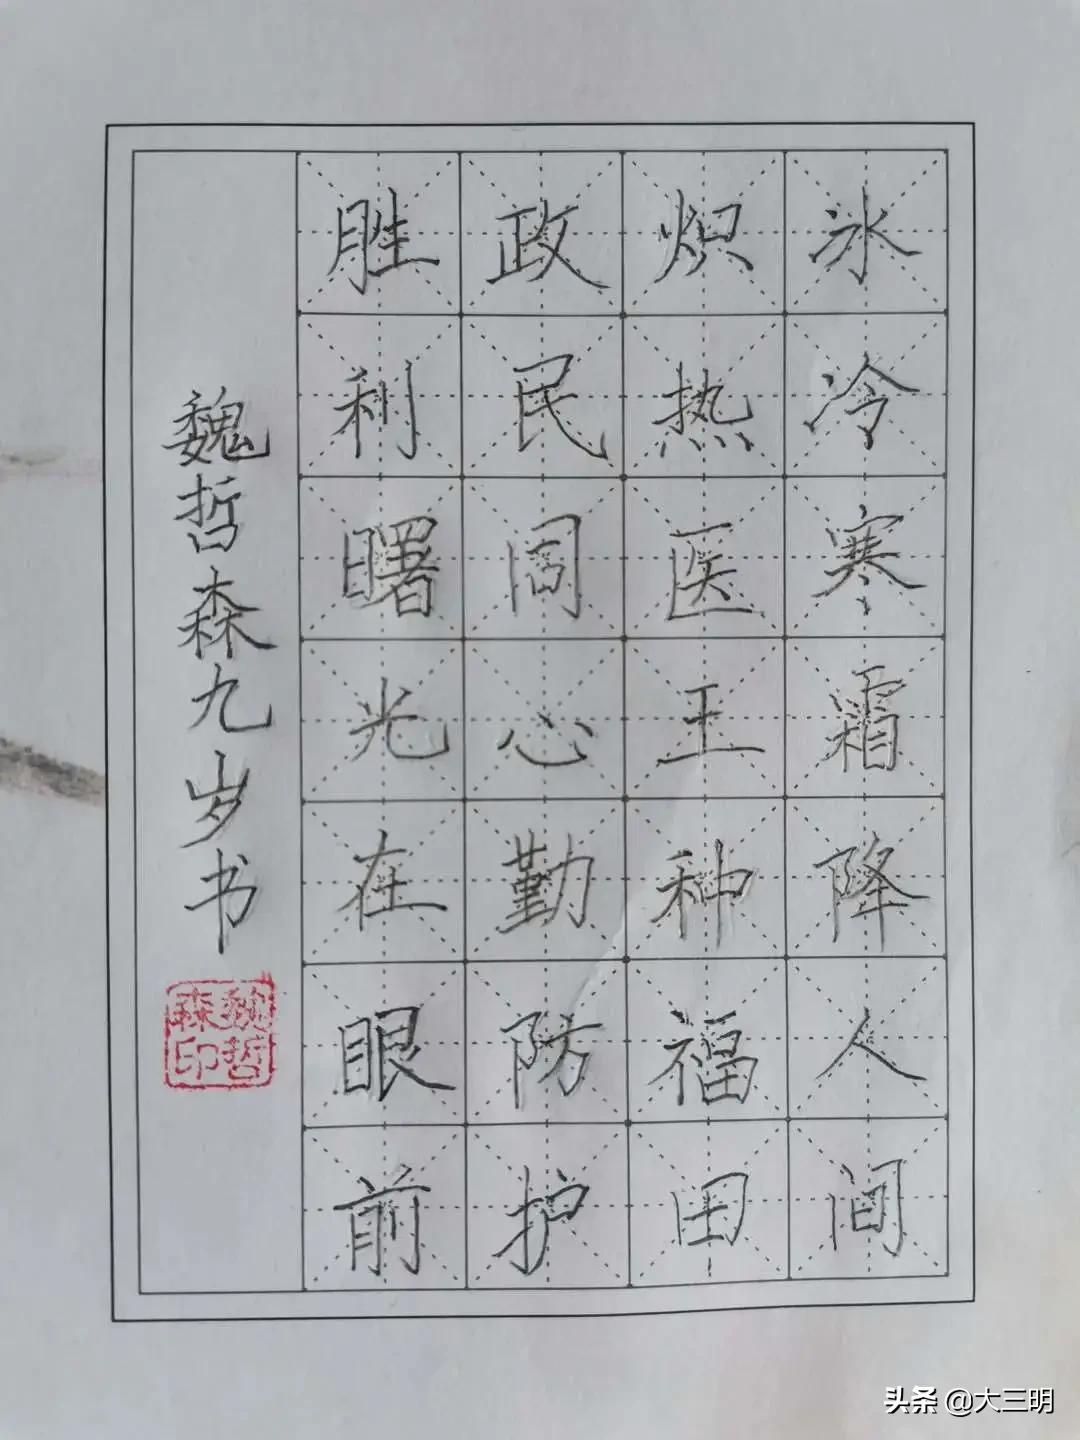 冰冷寒霜降人间
炽热医王种福田
政民同心勤防护
胜利曙光在眼前
魏哲森九岁书
魏哲森印
头条 @大三明